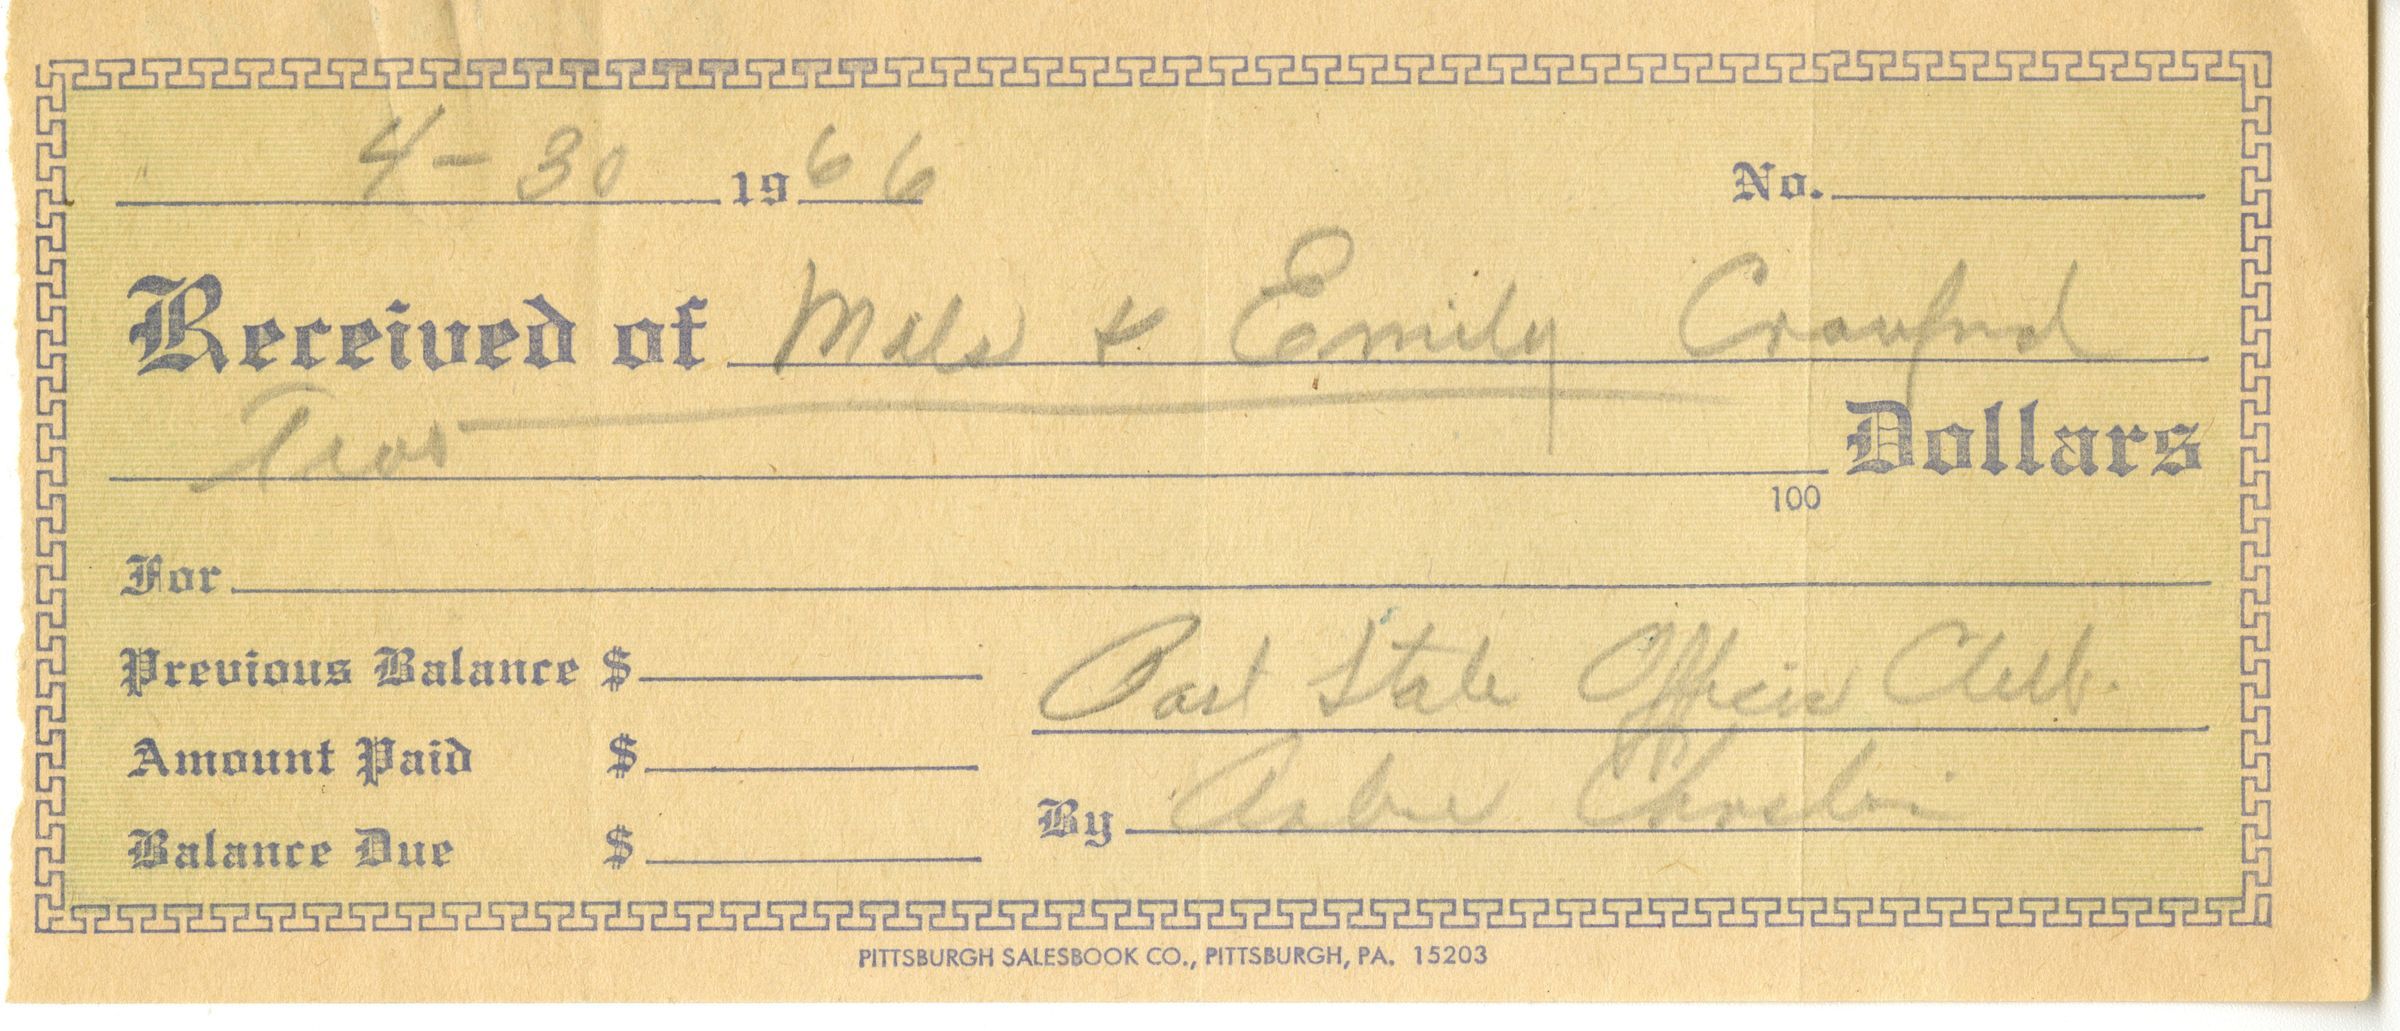 4-30 1966 No.
Received of Mels & Emily Crawford
Two Dollars
100
For
Previous Balance $
Past State Officer Club.
Amount Paid $
By
Balance Due $
PITTSBURGH SALESBOOK CO., PITTSBURGH, PA. 15203